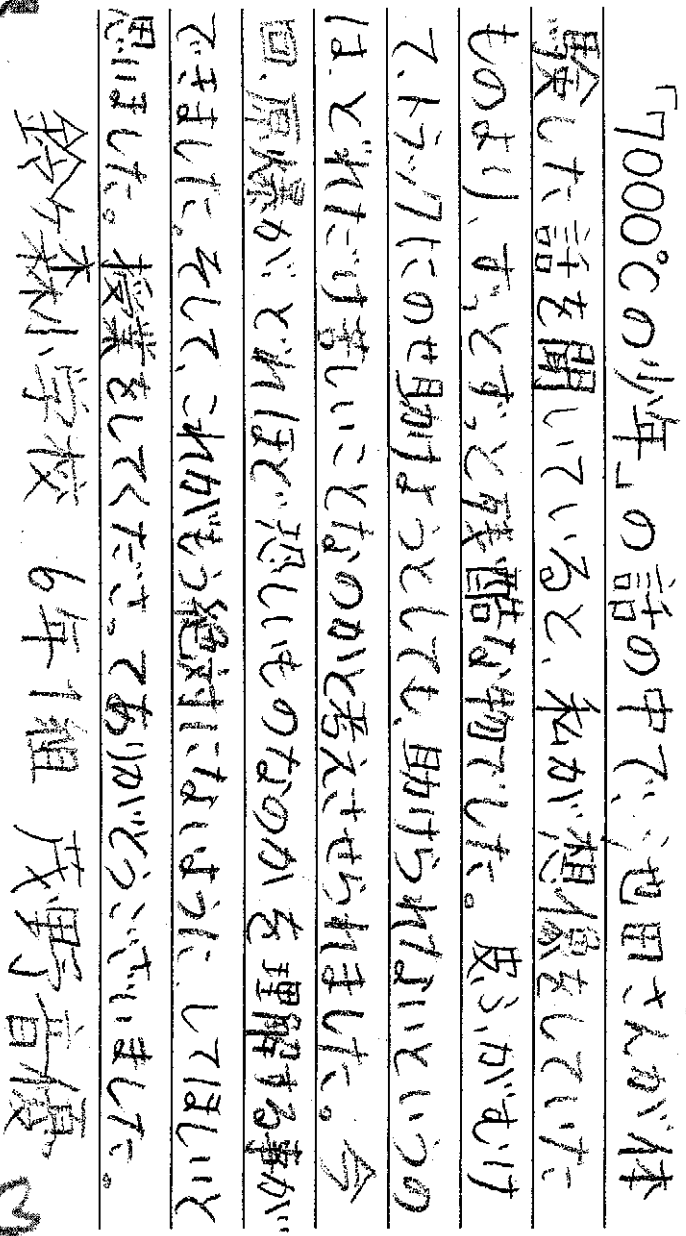 「7000℃の少年」の話の中で、池田さんが体
験した話を聞いていると、私が想像をしていた
ものより、ずっとずっと残酷な物でした。皮ふがむけ
て、トラックにのせ助けようとしても、助けられないというの
は、どれだけ苦しいことなのかと考えさせられました。今
回、原爆がどれほど恐しいものなのかを理解する事が
できました。そして、これがもう絶対にないように、してほしいと
思いました。授業をしてくださってありがとうございました。
鈴ヶ森小学校 6年1組 茂野音優